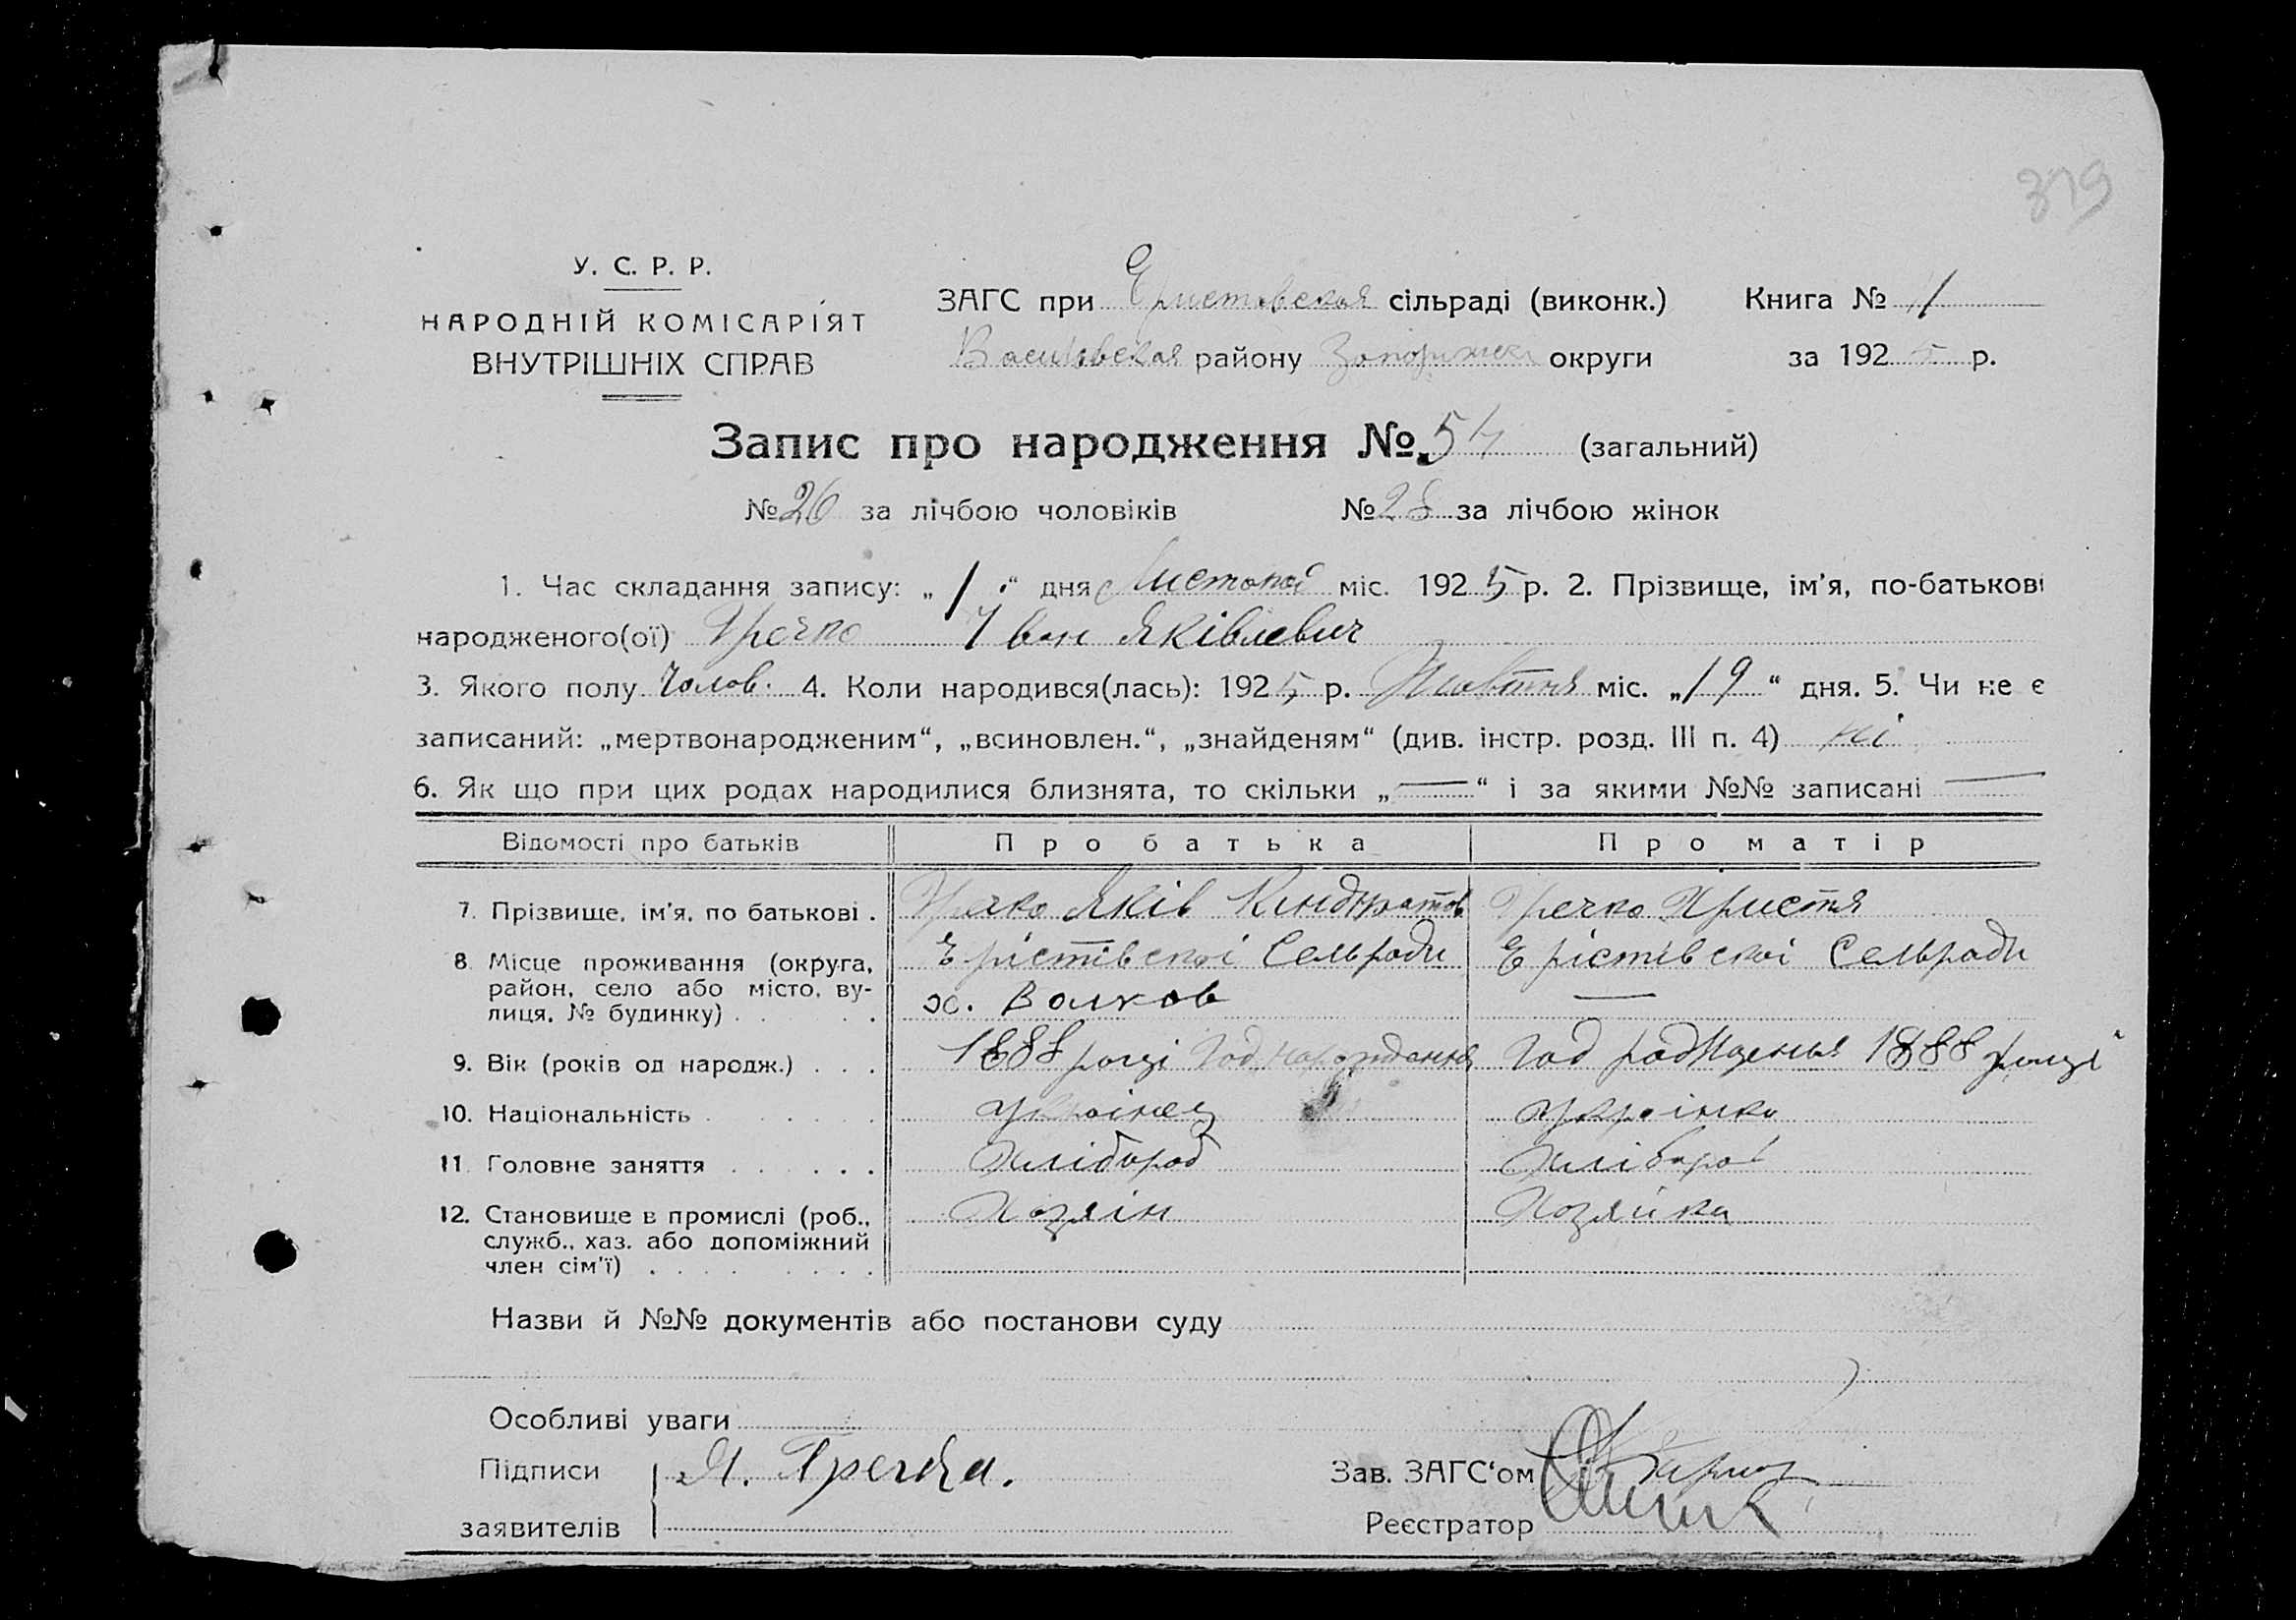 379
У. С. Р. Р.
НАРОДНІЙ КОМІСАРІЯТ
ВНУТРІШНІХ СПРАВ
ЗАГС при Еристовская сільраді (виконк.) Книга № 11
Василевская району Запорижск округи за 1925 р.
Запис про народження № 54 (загальний)
№ 26 за лічбою чоловіків № 28 за лічбою жінок
1. Час складання запису: „ 1 “ дня Листопад міс. 1925 р. 2. Прізвище, ім’я, по-батькові
народженого(ої) Гречко Іван Яківлевич
3. Якого полу Чолов. 4. Коли народився(лась): 1925 р. Жовтня міс. „19“ дня. 5. Чи не є
записаний: „мертвонародженим“, „всиновлен.“, „знайденям“ (див. інстр. розд. III п. 4) ні
6. Як що при цих родах народилися близнята, то скільки „—“ і за якими №№ записані —
Відомості про батьків Про батька Про матір
7. Прізвище, ім’я, по батькові . Гречко Яків Киндратов Гречко Христя
8. Місце проживання (округа, Ерістівскої Сельради Ерістівскої Сельради
район, село або місто, ву- х. Волков —
лиця, № будинку) . . . .
9. Вік (років од народж.) . . . 1888 році Год народження Год рождения 1888 році
10. Національність . . . . українец українка
11. Головне заняття . . . . . . Хлібороб Хлібороб
12. Становище в промислі (роб., Хозяін Хозяйка
служб., хаз. або допоміжний
член сім’ї) . . . . . . . .
Назви й №№ документів або постанови суду
Особливі уваги
Підписи Я. Гречка. Зав. ЗАГС‘ом
заявителів Реєстратор